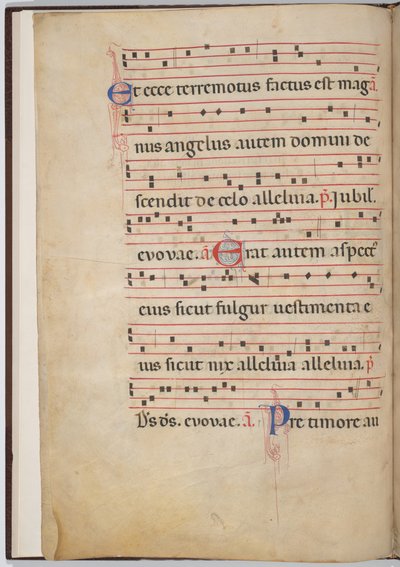 Et ecce terremotus factus est mag a
nus angelus autem domini de
scendit de celo alleluia. p̄. Jubil.
evovae. a Erat autem aspect
eius sicut fulgur vestimenta e
ius sicut nix alleluia alleluia. p̄
D̄s d̄s. evovae. a. Pre timore au